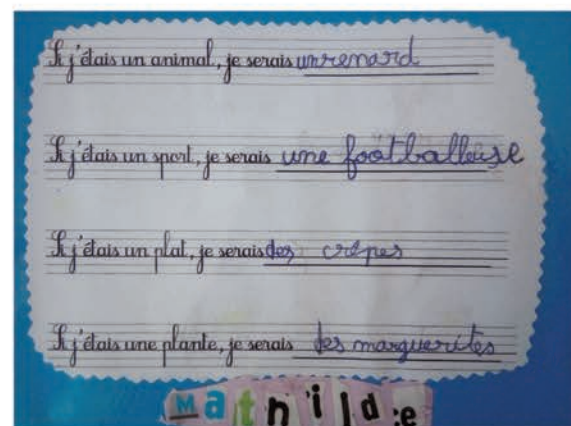 Si j'étais un animal, je serais un renard
Si j'étais un sport, je serais une footballeuse
Si j'étais un plat, je serais des crêpes
Si j'étais une plante, je serais des marguerites
Mathilde